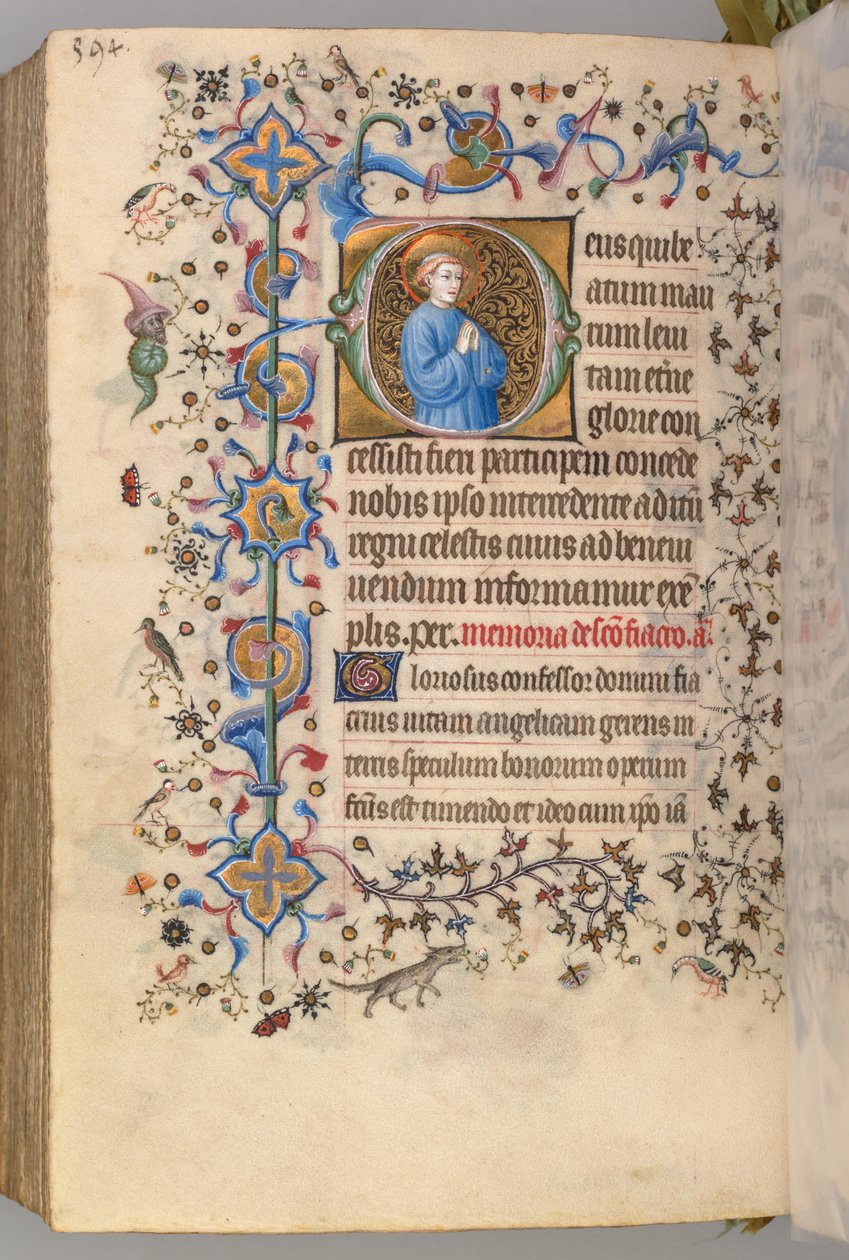 394.
eus qui be
atum mau
rum leui
tam et̄ne
glorie con
cessisti fieri participem concede
nobis ipso intercedente aditū
regni celestis cuius ad bene ui
uendum informamur exē
plis. per. memoria de sc̄o fiacro. añ.
Gloriosus confessor domini fia
crius uitam angelicam gerens in
terris speculum bonorum operum
fc̄us est timendo et ideo cum ip̄o iā